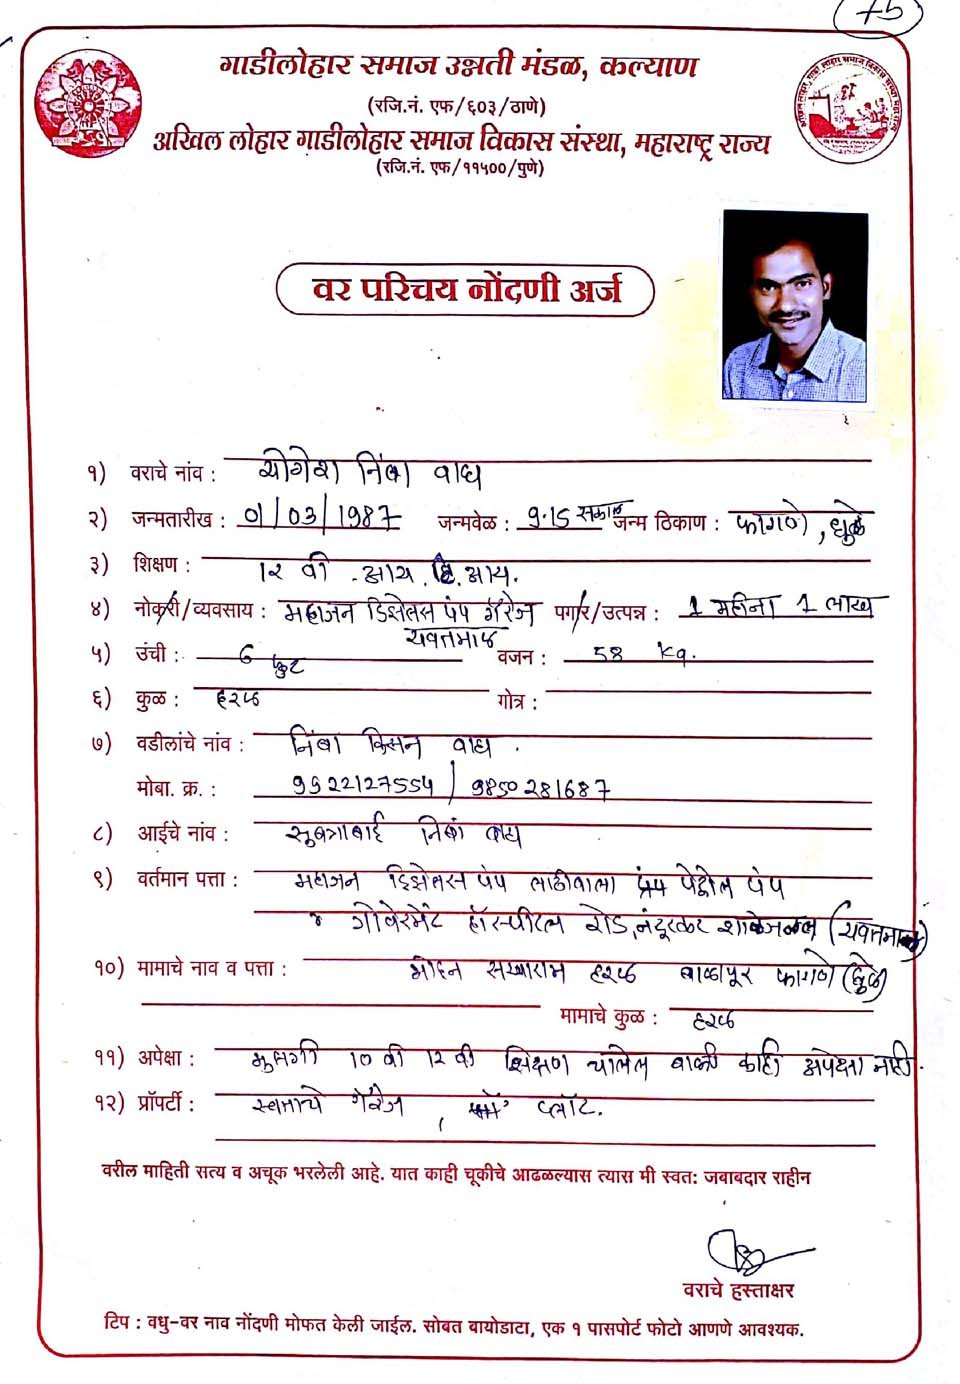 75
गाडीलोहार समाज उन्नती मंडळ, कल्याण
(रजि.नं. एफ/६०३/ठाणे)
अखिल लोहार गाडीलोहार समाज विकास संस्था, महाराष्ट्र राज्य
(रजि.नं. एफ/११५००/पुणे)
वर परिचय नोंदणी अर्ज
१) वराचे नांव : योगेश निंबा वाघ
२) जन्मतारीख : 01/03/1987 जन्मवेळ : 9.15 सकाळ जन्म ठिकाण : फागणे, धुळे
३) शिक्षण : १२ वी . आय. टि. आय.
४) नोकरी/व्यवसाय : महाजन डिझेलस पंप गॅरेज पगार/उत्पन्न : 1 महीना 1 लाख
यवतमाळ
५) उंची : 6 फुट वजन : 58 kg.
६) कुळ : हरळ गोत्र :
७) वडीलांचे नांव : निंबा किसन वाघ .
मोबा. क्र. : 9922127554 / 9850281687
८) आईचे नांव : निबां वाघ
९) वर्तमान पत्ता : महाजन डिझेलस पंप लाठीवाला पेट्रोल पंप
गोवेरमेंट हॉस्पीटल रोड, (यवतमाळ)
१०) मामाचे नाव व पत्ता : मोहन सखाराम हरळ बाळापूर फागणे (धुळे)
मामाचे कुळ : हरळ
११) अपेक्षा : मुलगी १० वी १२ वी शिक्षण चालेल बाकी काही अपेक्षा नाही.
१२) प्रॉपर्टी : स्वताचे गॅरेज , प्लॉट.
वरील माहिती सत्य व अचूक भरलेली आहे. यात काही चूकीचे आढळल्यास त्यास मी स्वत: जबाबदार राहीन
वराचे हस्ताक्षर
टिप : वधु-वर नाव नोंदणी मोफत केली जाईल. सोबत बायोडाटा, एक १ पासपोर्ट फोटो आणणे आवश्यक.